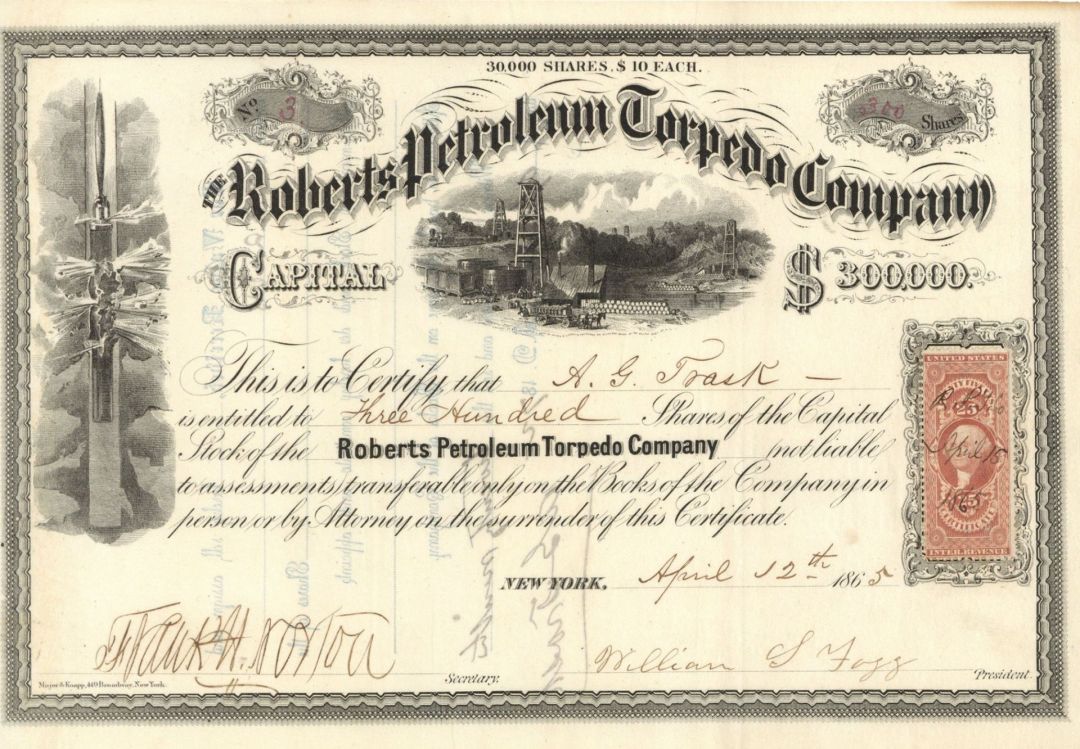 30,000 SHARES. $ 10 EACH.
No 3
300 Shares
THE Roberts Petroleum Torpedo Company
CAPITAL $ 300,000.
This is to Certify that A. G. Trask
is entitled to Three Hundred Shares of the Capital
Stock of the Roberts Petroleum Torpedo Company not liable
to assessments, transferable only on the Books of the Company in
person or by Attorney on the surrender of this Certificate.
UNITED STATES
25
April 15
1865
25
CERTIFICATE
INTER. REVENUE
NEW YORK, April 12th 1865
Frank H. Norton
Secretary.
William S Fogg
President.
Major & Knapp, 449 Broadway, New York.